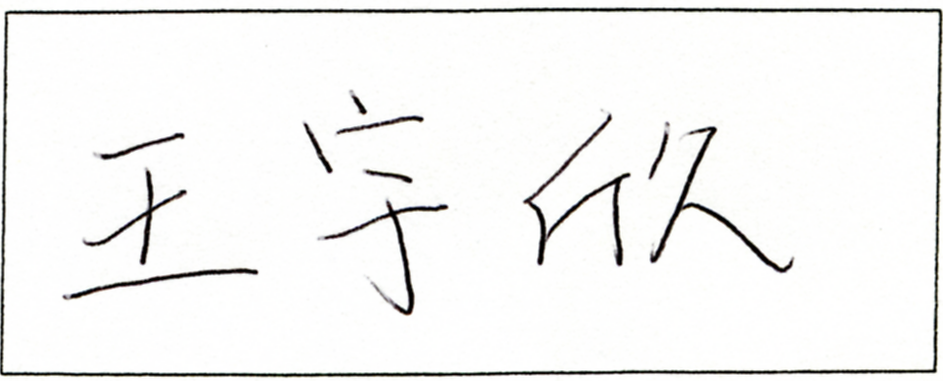 王宇欣